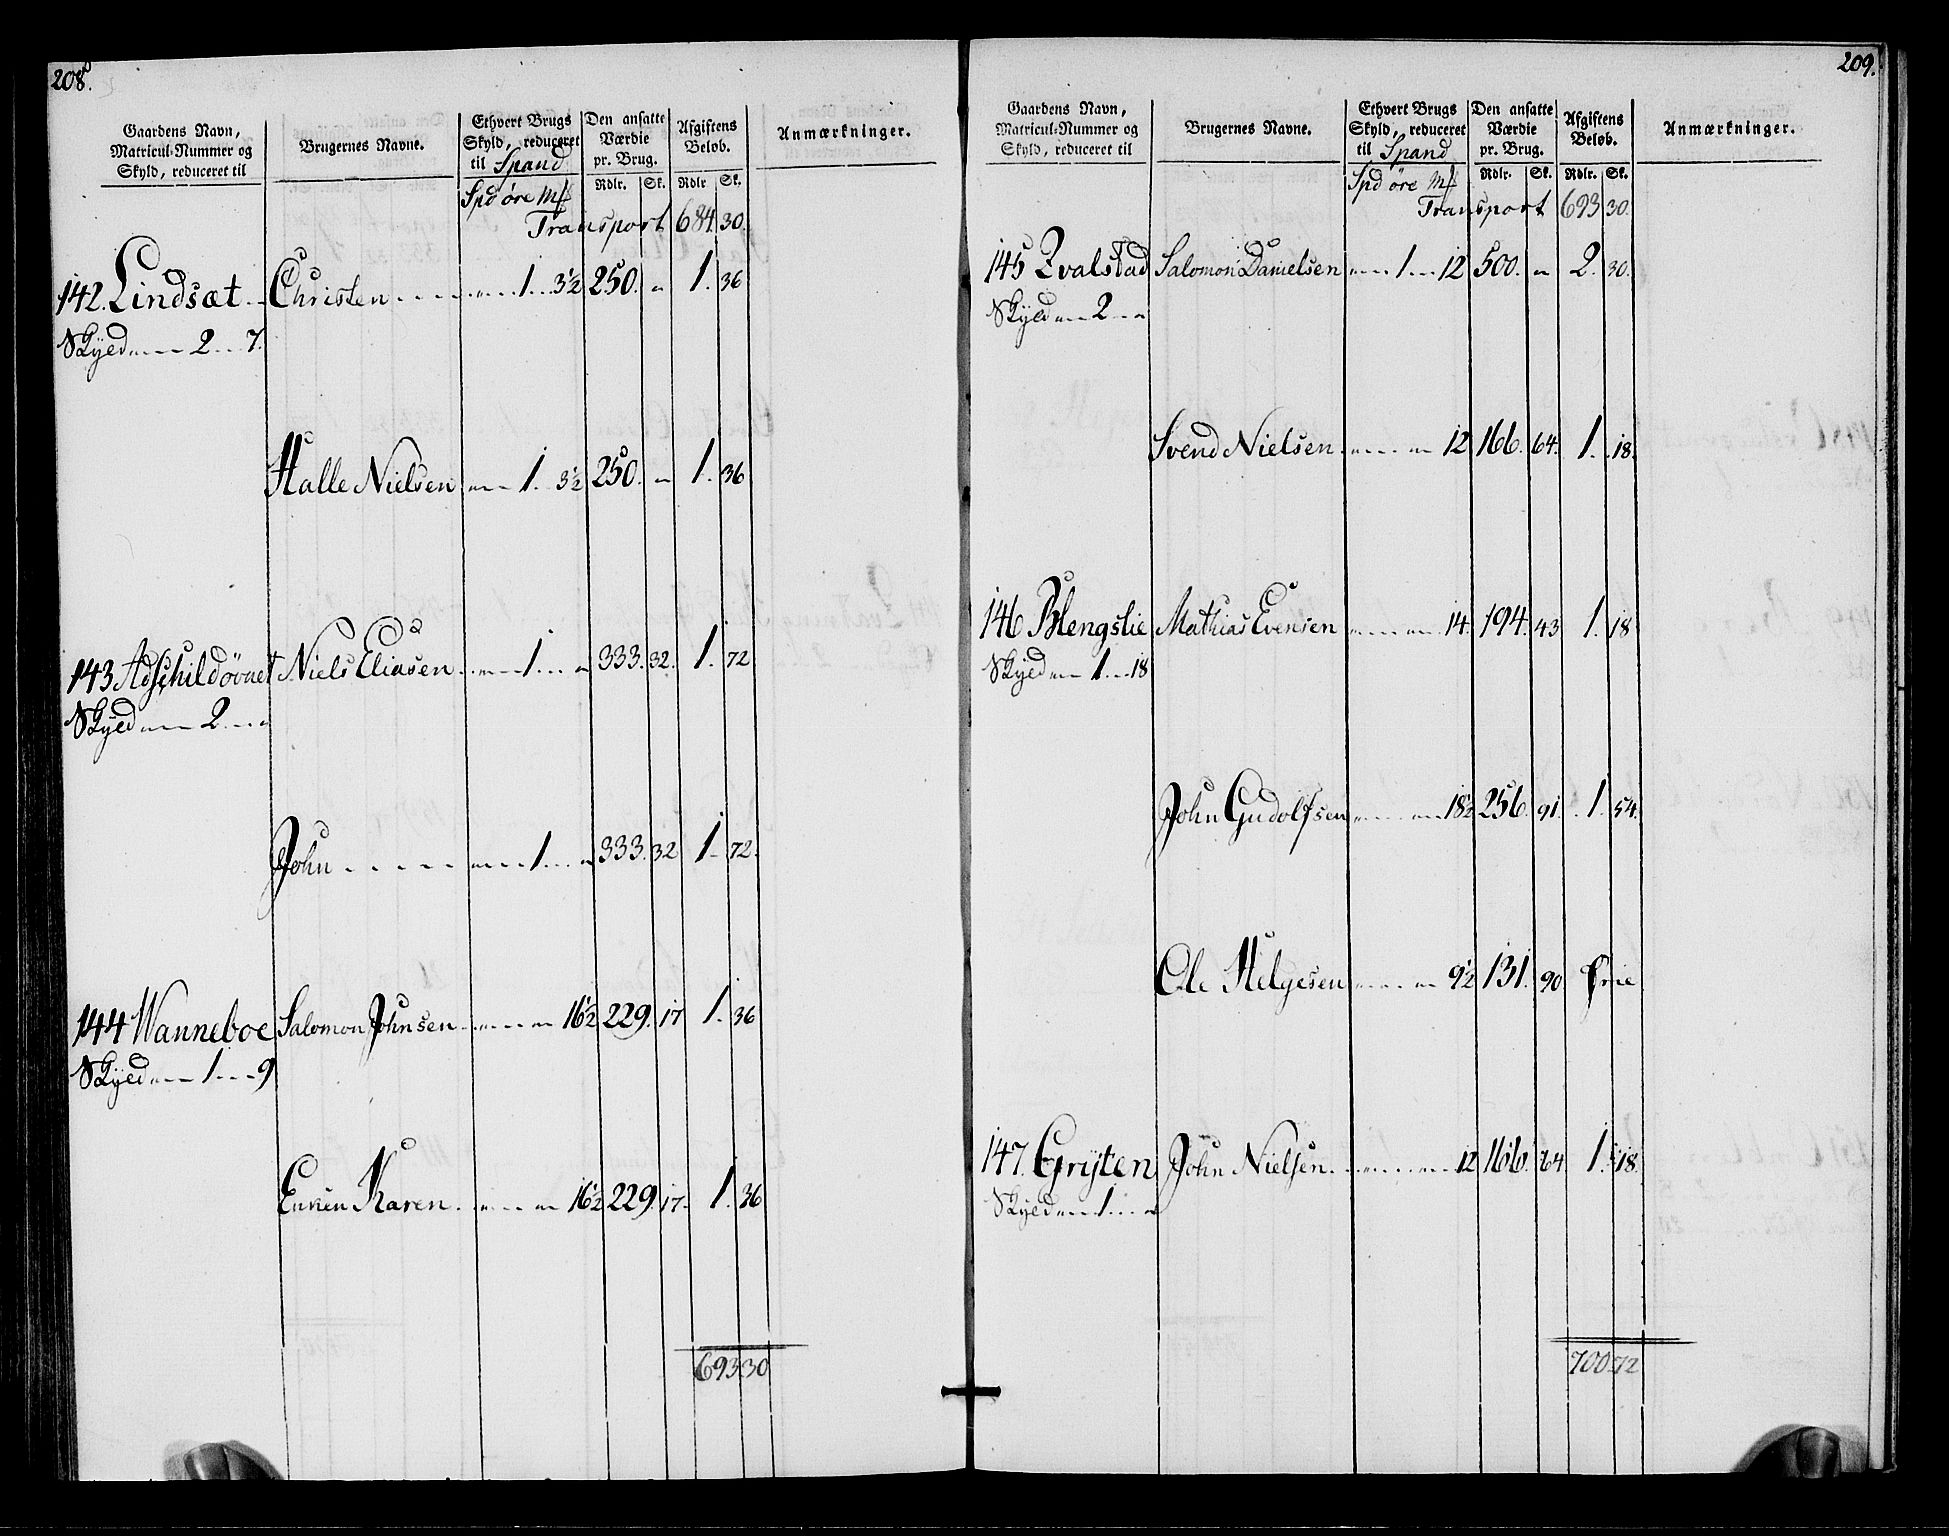 208.
Gaardens Navn, Matricul-Nummer og Skyld, reduceret til
Brugernes Navne.
Ethvert Brugs Skyld, reduceret til Spand
Den ansatte Værdie pr. Brug.
Afgiftens Beløb.
Anmærkninger.
Spd öre M
Rdlr. Sk. Rdlr Sk.
Transport 684. 30.
142. Lindsæt Christen 1 3½ 250. 1. 36
Skyld 2 7.
Halle Nielsen 1 3½ 250. 1. 36
143 Adschildövnet Niels Eliasen 1 333. 32. 1. 72
Skyld 2
John 1 333. 32 1. 72.
144 Wanneboe Salomon Johnsen 16½ 229. 17 1. 36
Skyld 1 9
Enken Karen 16½ 229. 17. 1. 36
693 30
209.
Gaardens Navn, Matricul-Nummer og Skyld, reduceret til
Brugernes Navne.
Ethvert Brugs Skyld, reduceret til Spand
Den ansatte Værdie pr. Brug.
Afgiftens Beløb.
Anmærkninger.
Spd öre M
Rdlr. Sk. Rdlr. Sk.
Transport 693 30.
145 Qvalstad Salomon Danielsen 1 12 500. 2. 30.
Skyld 2
Svend Nielsen 12 166. 64. 1. 18.
146 Blengslie Mathias Evensen 14. 194. 43 1. 18
Skyld 1 18
John Gudolfsen 18½ 256. 91. 1. 54.
Ole Helgesen 9½ 131. 90 frie
147. Grÿten John Nielsen 12 166. 64 1. 18.
Skyld 1
700. 72